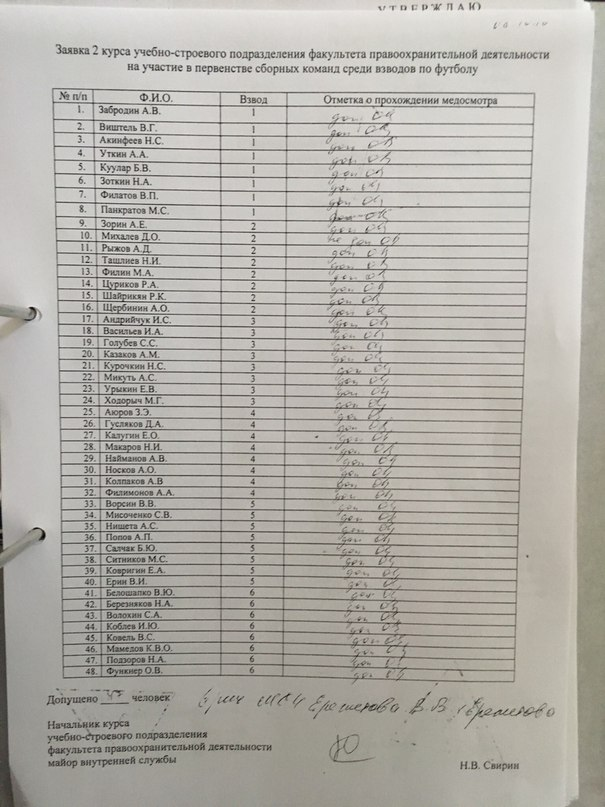 УТВЕРЖДАЮ
Заявка 2 курса учебно-строевого подразделения факультета правоохранительной деятельности
на участие в первенстве сборных команд среди взводов по футболу
№ п/п Ф.И.О. Взвод Отметка о прохождении медосмотра
1. Забродин А.В. 1 доп
2. Виштель В.Г. 1 доп
3. Акинфеев Н.С. 1 доп
4. Уткин А.А. 1 доп
5. Куулар Б.В. 1 доп
6. Зоткин Н.А. 1 доп
7. Филатов В.П. 1 доп
8. Панкратов М.С. 1 доп
9. Зорин А.Е. 2 доп
10. Михалев Д.О. 2 не доп
11. Рыжов А.Д. 2 доп
12. Ташлиев Н.И. 2 доп
13. Филин М.А. 2 доп
14. Цуриков Р.А. 2 доп
15. Шайрикян Р.К. 2 доп
16. Щербинин А.О. 2 доп
17. Андрийчук И.С. 3 доп
18. Васильев И.А. 3 доп
19. Голубев С.С. 3 доп
20. Казаков А.М. 3 доп
21. Курочкин Н.С. 3 доп
22. Микуть А.С. 3 доп
23. Урыкин Е.В. 3 доп
24. Ходорыч М.Г. 3 доп
25. Аюров З.Э. 4 доп
26. Гусляков Д.А. 4 доп
27. Калугин Е.О. 4 доп
28. Макаров Н.И. 4 доп
29. Найманов А.В. 4 доп
30. Носков А.О. 4 доп
31. Колпаков А.В 4 доп
32. Филимонов А.А. 4 доп
33. Ворсин В.В. 5 доп
34. Мисоченко С.В. 5 доп
35. Нищета А.С. 5 доп
36. Попов А.П. 5 доп
37. Салчак Б.Ю. 5 доп
38. Ситников М.С. 5 доп
39. Ковригин Е.А. 5 доп
40. Ерин В.И. 5 доп
41. Белошапко В.Ю. 6 доп
42. Березняков Н.А. 6 доп
43. Волохин С.А. 6 доп
44. Коблев И.Ю. 6 доп
45. Ковель В.С. 6 доп
46. Мамедов К.В.О. 6 доп
47. Подзоров Н.А. 6 доп
48. Функнер О.В. 6 доп
Допущено 47 человек
Начальник курса
учебно-строевого подразделения
факультета правоохранительной деятельности
майор внутренней службы Н.В. Свирин